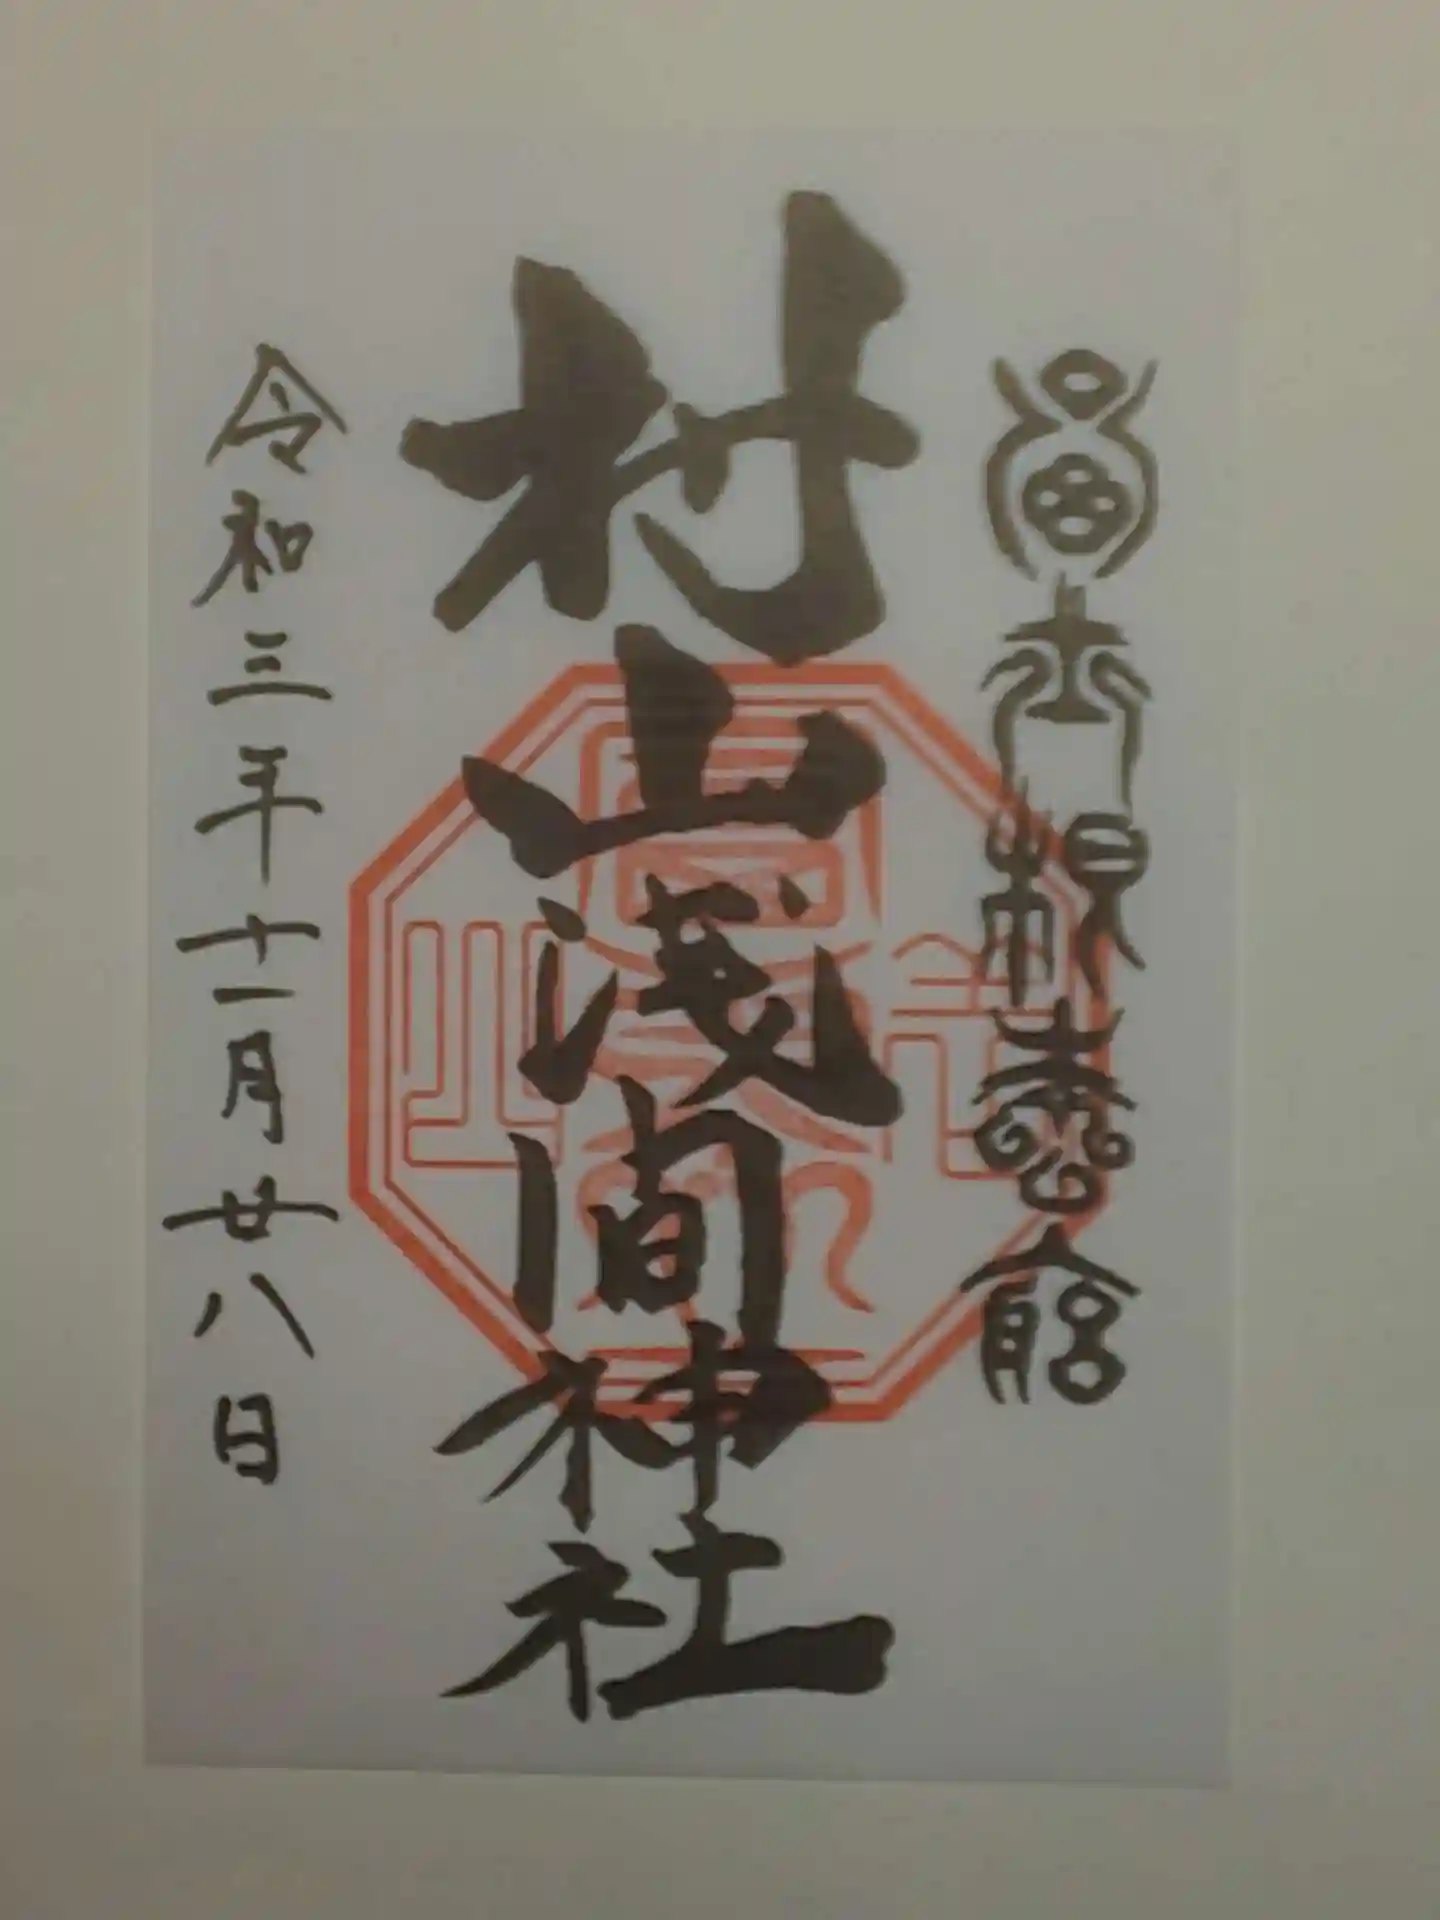 富士根本宮
村山浅間神社
令和三年十一月廿八日